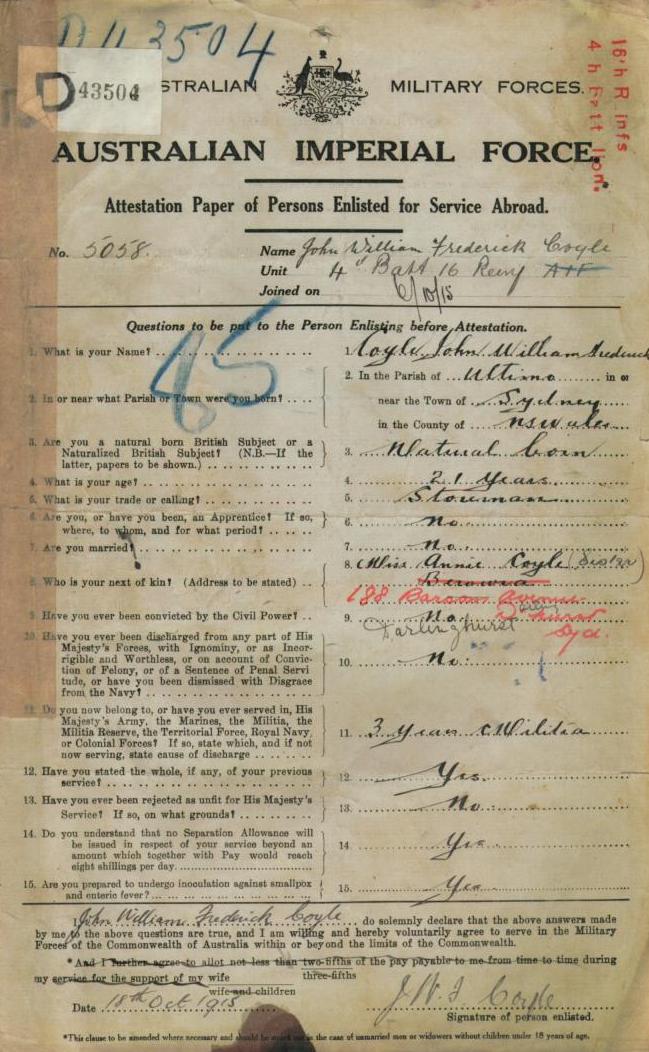 D 43504
D 43504
AUSTRALIAN MILITARY FORCES.
16th Reinfs
4th Battalion.
AUSTRALIAN IMPERIAL FORCE.
Attestation Paper of Persons Enlisted for Service Abroad.
No. 5058. Name John William Frederick Coyle
Unit 4th Batt 16 Rein AIF
Joined on 6/10/15
Questions to be put to the Person Enlisting before Attestation.
45
1. What is your Name? 1. Coyle John William Frederick
2. In or near what Parish or Town were you born? 2. In the Parish of Ultimo in or
near the Town of Sydney
in the County of NSWales
3. Are you a natural born British Subject or a
Naturalized British Subject? (N.B.—If the
latter, papers to be shown.) 3. Natural born
4. What is your age? 4. 21 Years
5. What is your trade or calling? 5. Storeman
6. Are you, or have you been, an Apprentice? If so,
where, to whom, and for what period? 6. No.
7. Are you married? 7. No.
8. Who is your next of kin? (Address to be stated) 8. Miss Annie Coyle (Sister)
Berowra
188 Avenue
Darlinghurst
Syd.
9. Have you ever been convicted by the Civil Power? 9. No.
Darlinghurst
10. Have you ever been discharged from any part of His
Majesty's Forces, with Ignominy, or as Incor-
rigible and Worthless, or on account of Convic-
tion of Felony, or of a Sentence of Penal Servi
tude, or have you been dismissed with Disgrace
from the Navy? 10. No.
11. Do you now belong to, or have you ever served in, His
Majesty's Army, the Marines, the Militia, the
Militia Reserve, the Territorial Force, Royal Navy,
or Colonial Forces? If so, state which, and if not
now serving, state cause of discharge 11. 3 Years Militia
12. Have you stated the whole, if any, of your previous
service? 12. Yes.
13. Have you ever been rejected as unfit for His Majesty's
Service? If so, on what grounds? 13. No.
14. Do you understand that no Separation Allowance will
be issued in respect of your service beyond an
amount which together with Pay would reach
eight shillings per day. 14 Yes
15. Are you prepared to undergo inoculation against smallpox
and enteric fever? 15. Yes
I, John William Frederick Coyle do solemnly declare that the above answers made
by me to the above questions are true, and I am willing and hereby voluntarily agree to serve in the Military
Forces of the Commonwealth of Australia within or beyond the limits of the Commonwealth.
*And I further agree to allot not less than two-fifths of the pay payable to me from time to time during
three-fifths
my service for the support of my wife
wife and children
Date 18th Oct 1915 J W F Coyle
Signature of person enlisted.
*This clause to be amended where necessary and should be struck out in the case of unmarried men or widowers without children under 18 years of age.